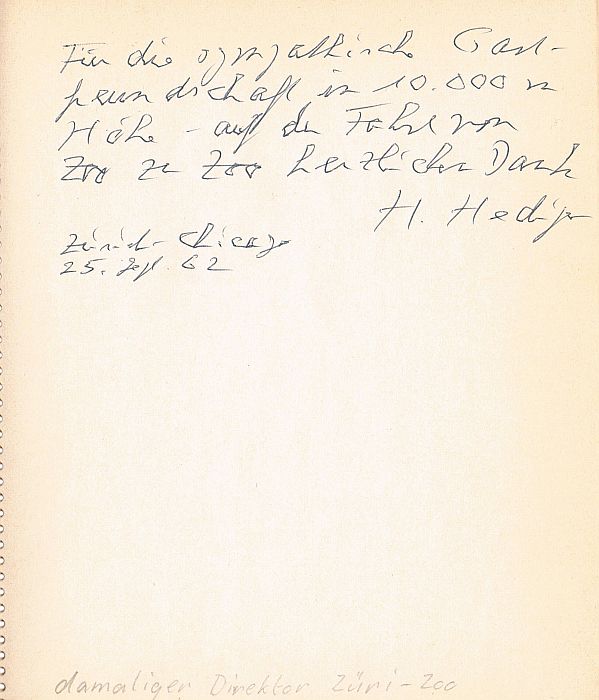 Für die sympathische Gast-
freundschaft in 10.000 m
Höhe - auf der Fahrt von
Zoo zu Zoo herzlichen Dank
H. Hediger
Zürich - Chicago
25. Sept. 62
damaliger Direktor Züri-Zoo